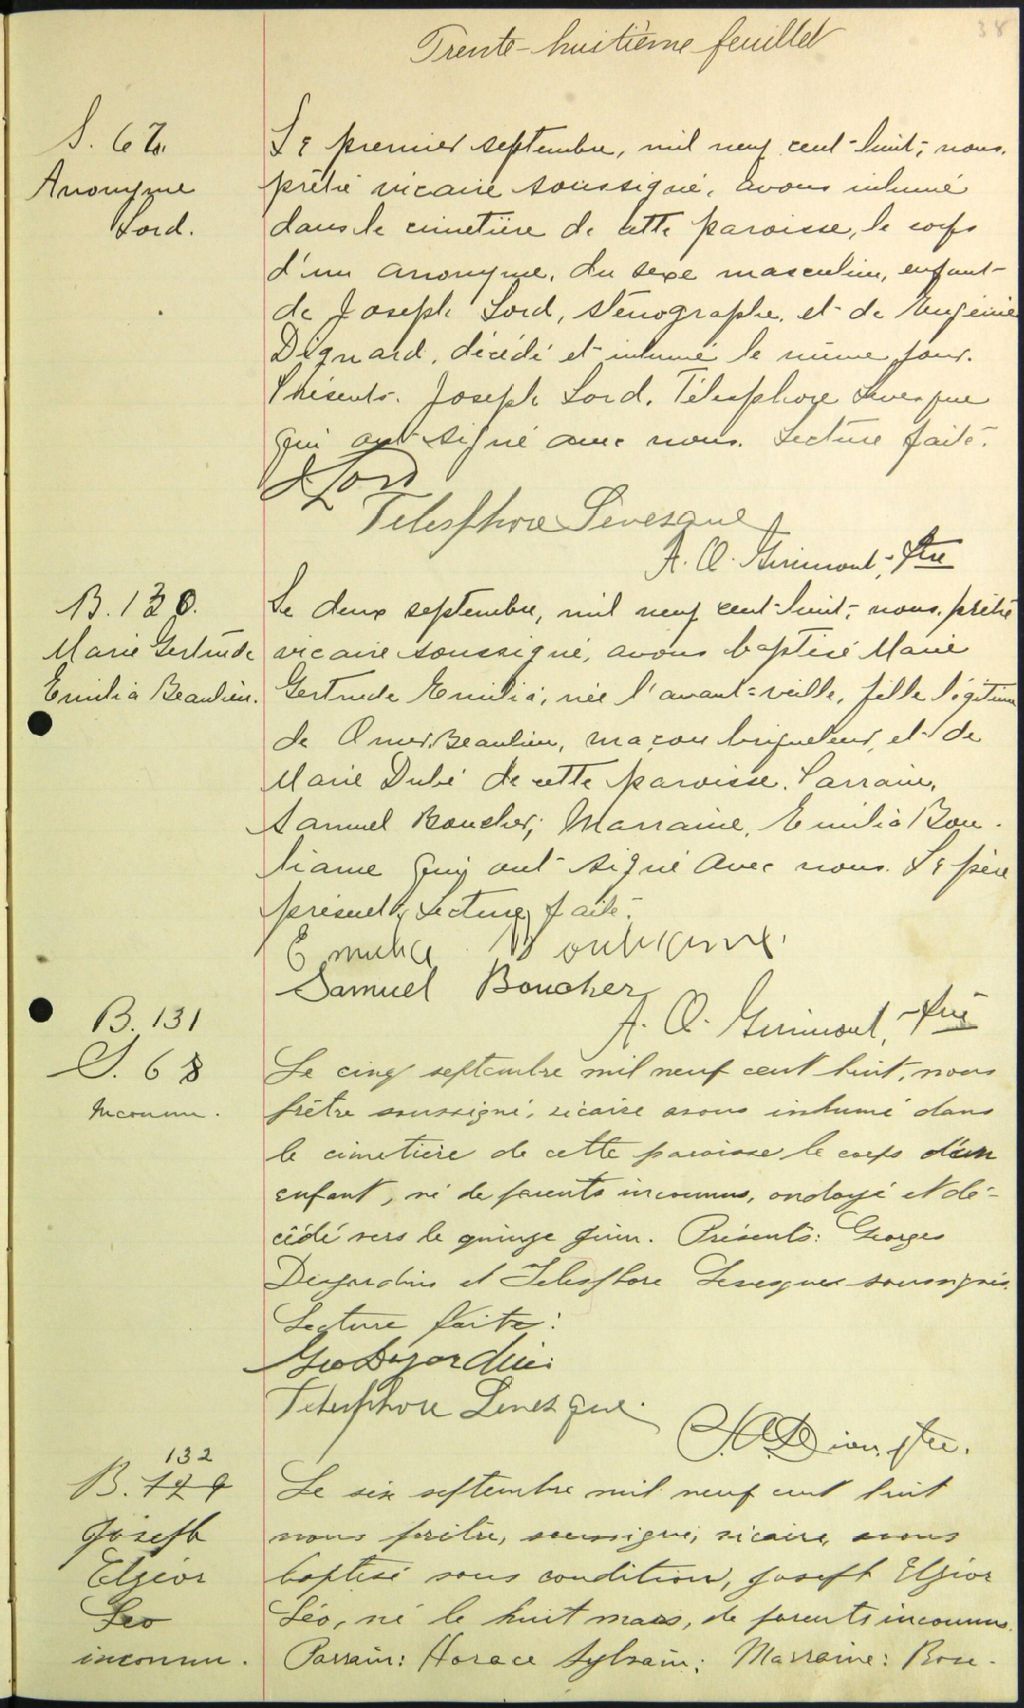 38
Trente-huitième feuillet
S. 67.
Anonyme
Lord.
Le premier septembre, mil neuf cent-huit, nous,
prêtre vicaire soussigné, avons inhumé
dans le cimetière de cette paroisse, le corps
d'un anonyme, du sexe masculin, enfant
de Joseph Lord, sténographe, et de Eugénie
Dignard, décédé et inhumé le même jour.
Présents. Joseph Lord, Télesphore Levesque
qui ont signé avec nous. Lecture faite.
J. Lord
Telesphore Levesque
A. O. Ptre
B. 130.
Marie Gertrude
Emilia Beaulieu.
Le deux septembre, mil neuf cent-huit, nous, prêtre
vicaire soussigné, avons baptisé Marie
Gertrude Emilia, née l'avant-veille, fille légitime
de Omer Beaulieu, maçon briqueleur, et de
Marie Dubé de cette paroisse. Parrain,
Samuel Boucher; Marraine, Emilia Bou-
lianne qui ont signé avec nous. Le père
présent, Lecture faite.
Emilia Boulianne.
Samuel Boucher
A. O. Ptre
B. 131
S. 68
Inconnu.
Le cinq septembre mil neuf cent huit, nous
prêtre soussigné, vicaire avons inhumé dans
le cimetière de cette paroisse le corps d'un
enfant, né de parents inconnus, ondoyé et dé-
cédé vers le quinze juin. Présents: Georges
Desjardins et Telesphore Levesque soussignés.
Lecture faite:
Geo Desjardins
Telesphore Levesque.
Dion, ptre.
132
B. 129
Joseph
Elzéor
Leo
inconnu.
Le six septembre mil neuf cent huit
nous prêtre, soussigné, vicaire, avons
baptisé sous condition, Joseph Elzéor
Léo, né le huit mars, de parents inconnus.
Parrain: Horace Sylvain; Marraine: Rose-